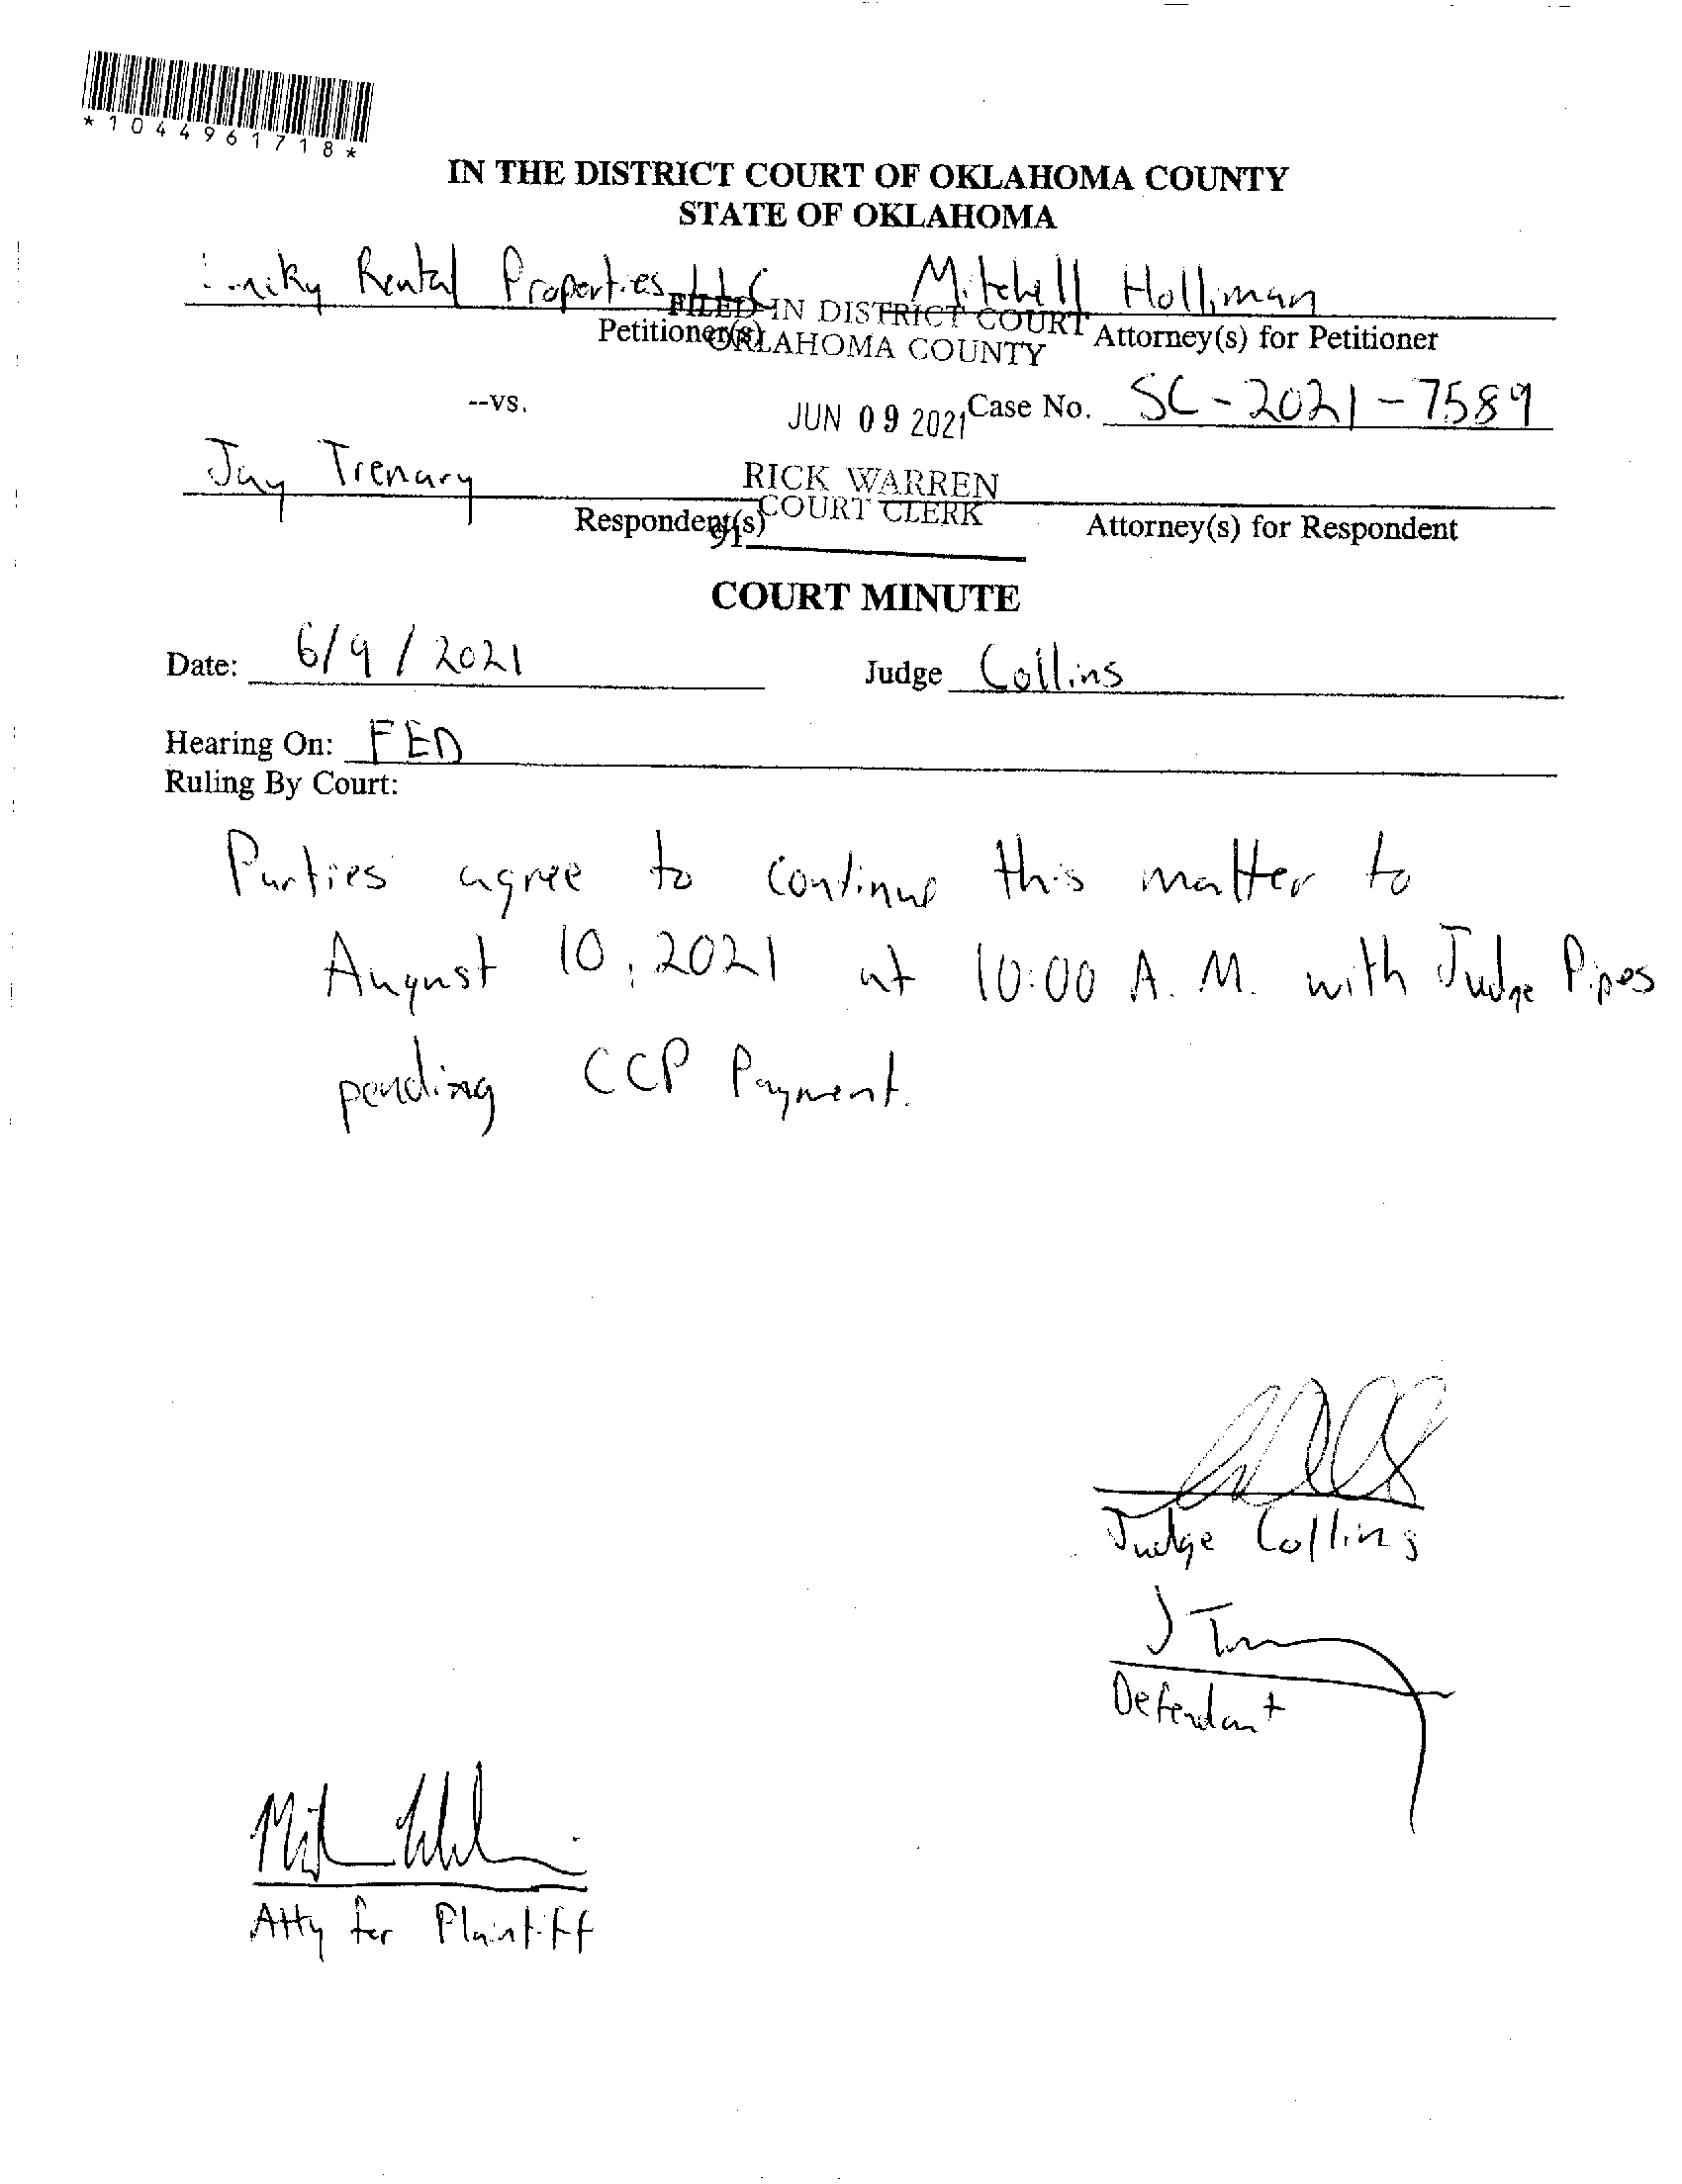 *1044961718*
IN THE DISTRICT COURT OF OKLAHOMA COUNTY
STATE OF OKLAHOMA
Rental Properties LLC Mitchell Holliman
Petitioner(s) Attorney(s) for Petitioner
FILED IN DISTRICT COURT
OKLAHOMA COUNTY
--vs. Case No. SC-2021-7589
JUN 09 2021
Jay Trenary
RICK WARREN
COURT CLERK
Respondent(s) Attorney(s) for Respondent
91
COURT MINUTE
Date: 6/9/2021 Judge Collins
Hearing On: FED
Ruling By Court:
Parties agree to continue this matter to
August 10, 2021 at 10:00 A.M. with Judge Pipes
pending CCP Payment.
Judge Collins
Defendant
Atty for Plaintiff